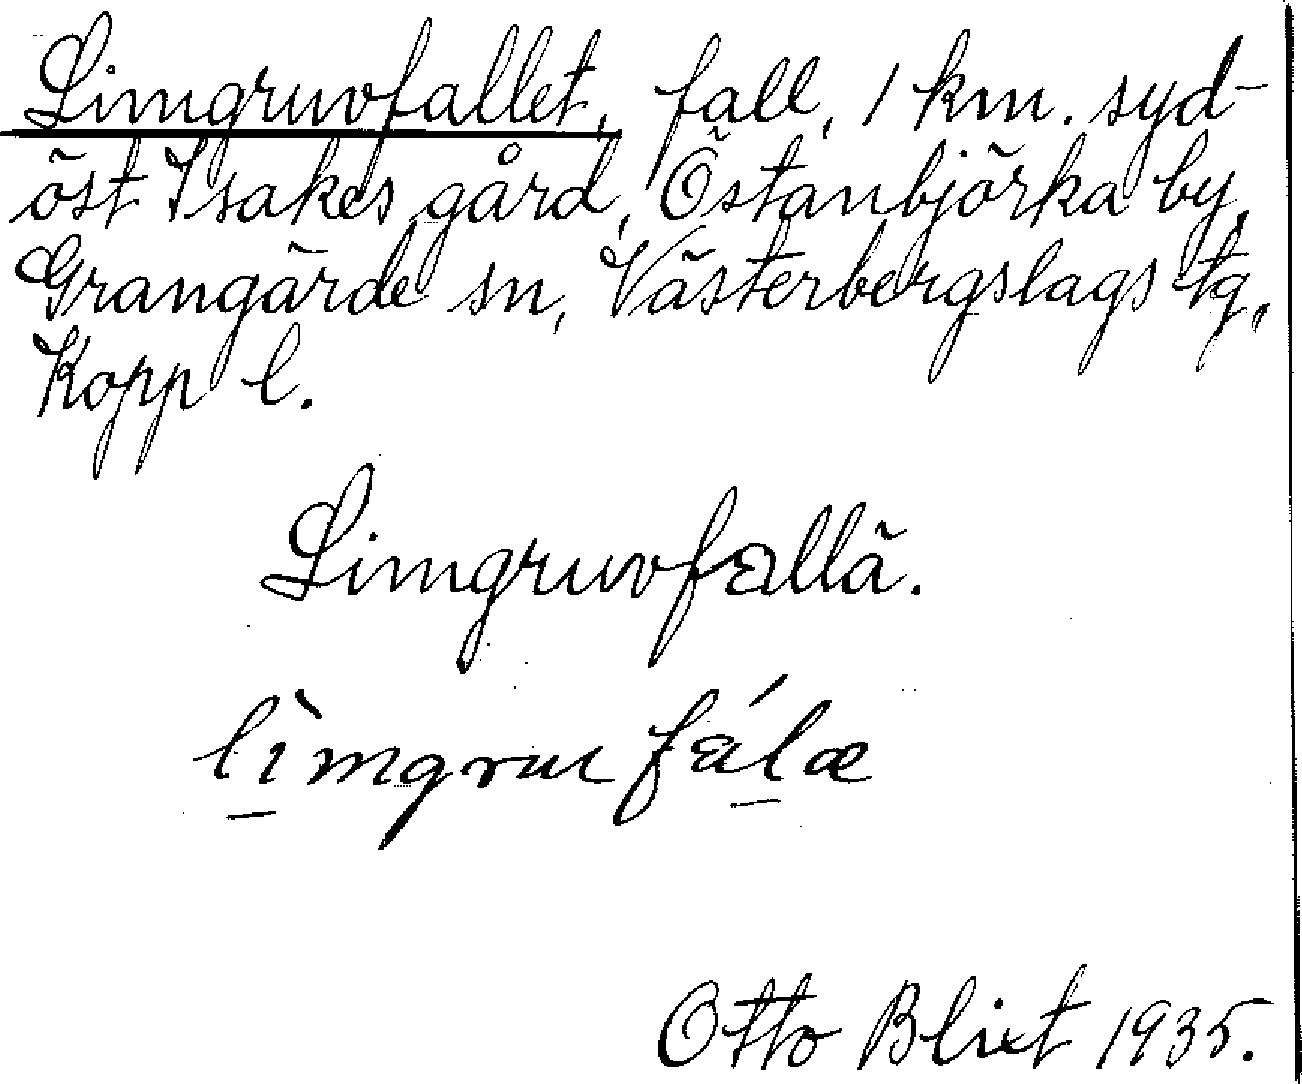 Limgruvfallet, fall, 1 km. syd-
öst Isakes gård, Östanbjörka by,
Grangärde sn, Västerbergslags tg,
Kopp l.
Limgruvfallä.
lìmgrufálæ
Otto Blixt 1935.